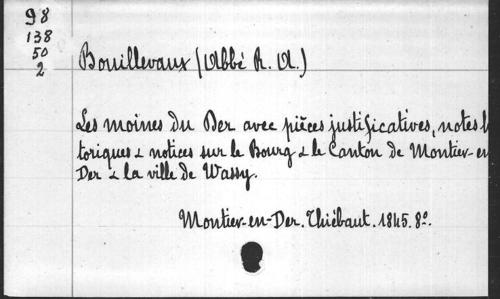 98
138
50
2
Bouillevaux (Abbé R. A.)
Les moines du Der avec pièces justificatives, notes h
toriques & notices sur le Bourg & le Canton de Montier-en
Der & la ville de Wassy.
Montier-en-Der. Thiébaut. 1845. 8º.